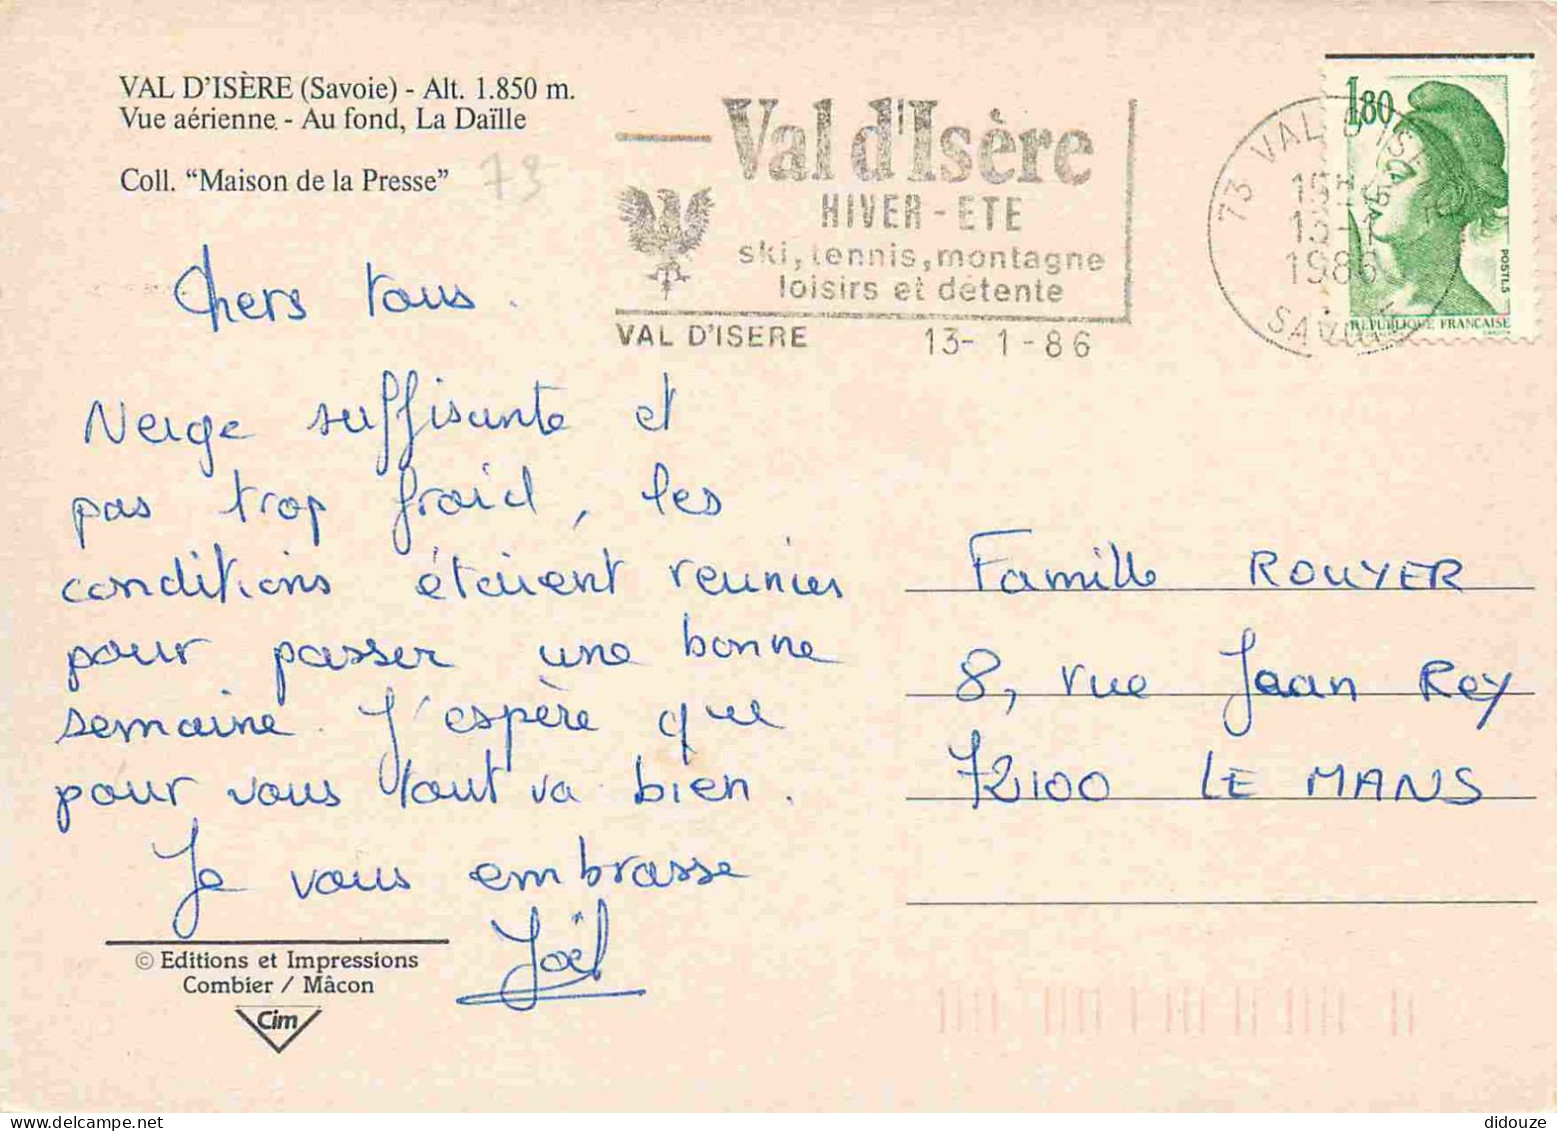 VAL D'ISÈRE (Savoie) - Alt. 1.850 m.
Vue aérienne - Au fond, La Daïlle
Coll. "Maison de la Presse"
73
Val d'Isère
HIVER - ETE
ski, tennis, montagne
loisirs et détente
VAL D'ISERE 13- 1 - 86
73 VAL D'ISÈ
1986
SAVOIE
1,80
POSTES
REPUBLIQUE FRANÇAISE
Chers tous.
Neige suffisante et
pas trop froid, les
conditions étaient reunies
pour passer une bonne
semaine. J'espère que
pour vous tout va bien.
Je vous embrasse
Joël
Famille ROUYER
8, rue Jean Rey
72100 LE MANS
© Editions et Impressions
Combier / Mâcon
Cim
didouze